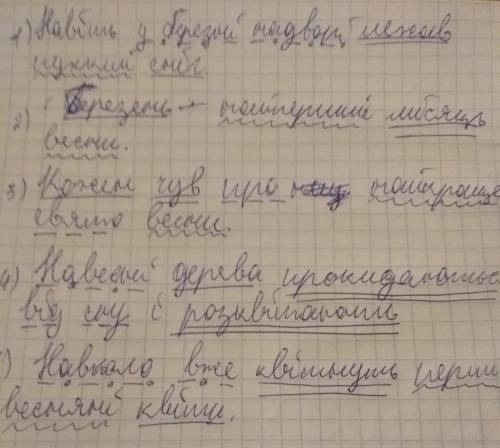 1) Навіть у березні надворі лежав
пухкий сніг.
2) Березень - найперший місяць
весни.
3) Кожен чув про найкраще
свято весни.
4) Навесні дерева прокидаються
від сну і розквітають
) Навколо вже квітнуть перші
весняні квіти.